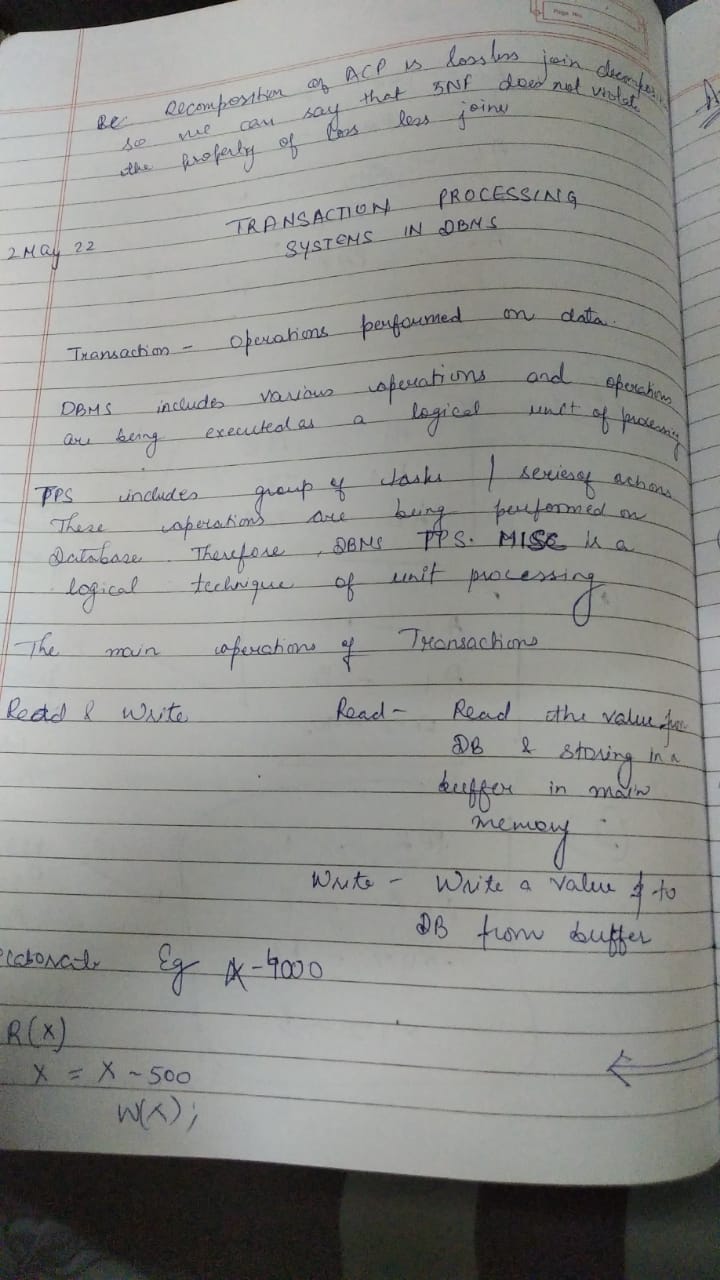 Page No.
Bc Decomposition of ACP is lossless join decompos
so we can say that 5NF does not violate
the property of loss less joins
2 May 22
TRANSACTION PROCESSING
SYSTEMS IN DBMS
Transaction - Operations performed on data.
DBMS includes various operations and operations
are being executed as a logical unit of processing
TPS includes group of tasks / series of actions
These operations are being performed on
Database. Therefore, DBMS TPS. is a
logical technique of unit processing
The main operations of Transactions
Read & Write
Read - Read the value from
DB & storing in a
buffer in main
memory.
Write - Write a value to
DB from buffer
Eg X-4000
R(X)
X = X - 500
W(X);